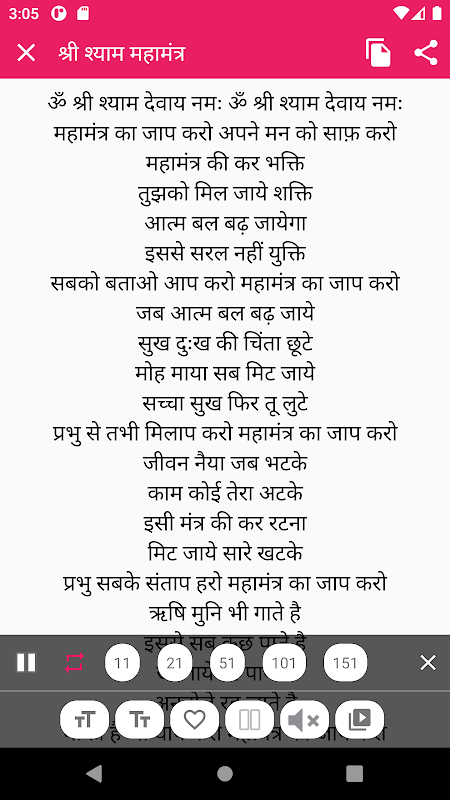 3:05
श्री श्याम महामंत्र
ॐ श्री श्याम देवाय नमः ॐ श्री श्याम देवाय नमः
महामंत्र का जाप करो अपने मन को साफ़ करो
महामंत्र की कर भक्ति
तुझको मिल जाये शक्ति
आत्म बल बढ़ जायेगा
इससे सरल नहीं युक्ति
सबको बताओ आप करो महामंत्र का जाप करो
जब आत्म बल बढ़ जाये
सुख दुःख की चिंता छूटे
मोह माया सब मिट जाये
सच्चा सुख फिर तू लुटे
प्रभु से तभी मिलाप करो महामंत्र का जाप करो
जीवन नैया जब भटके
काम कोई तेरा अटके
इसी मंत्र की कर रटना
मिट जाये सारे खटके
प्रभु सबके संताप हरो महामंत्र का जाप करो
ऋषि मुनि भी गाते है
इससे सब कुछ पाते है
11 21 51 101 151